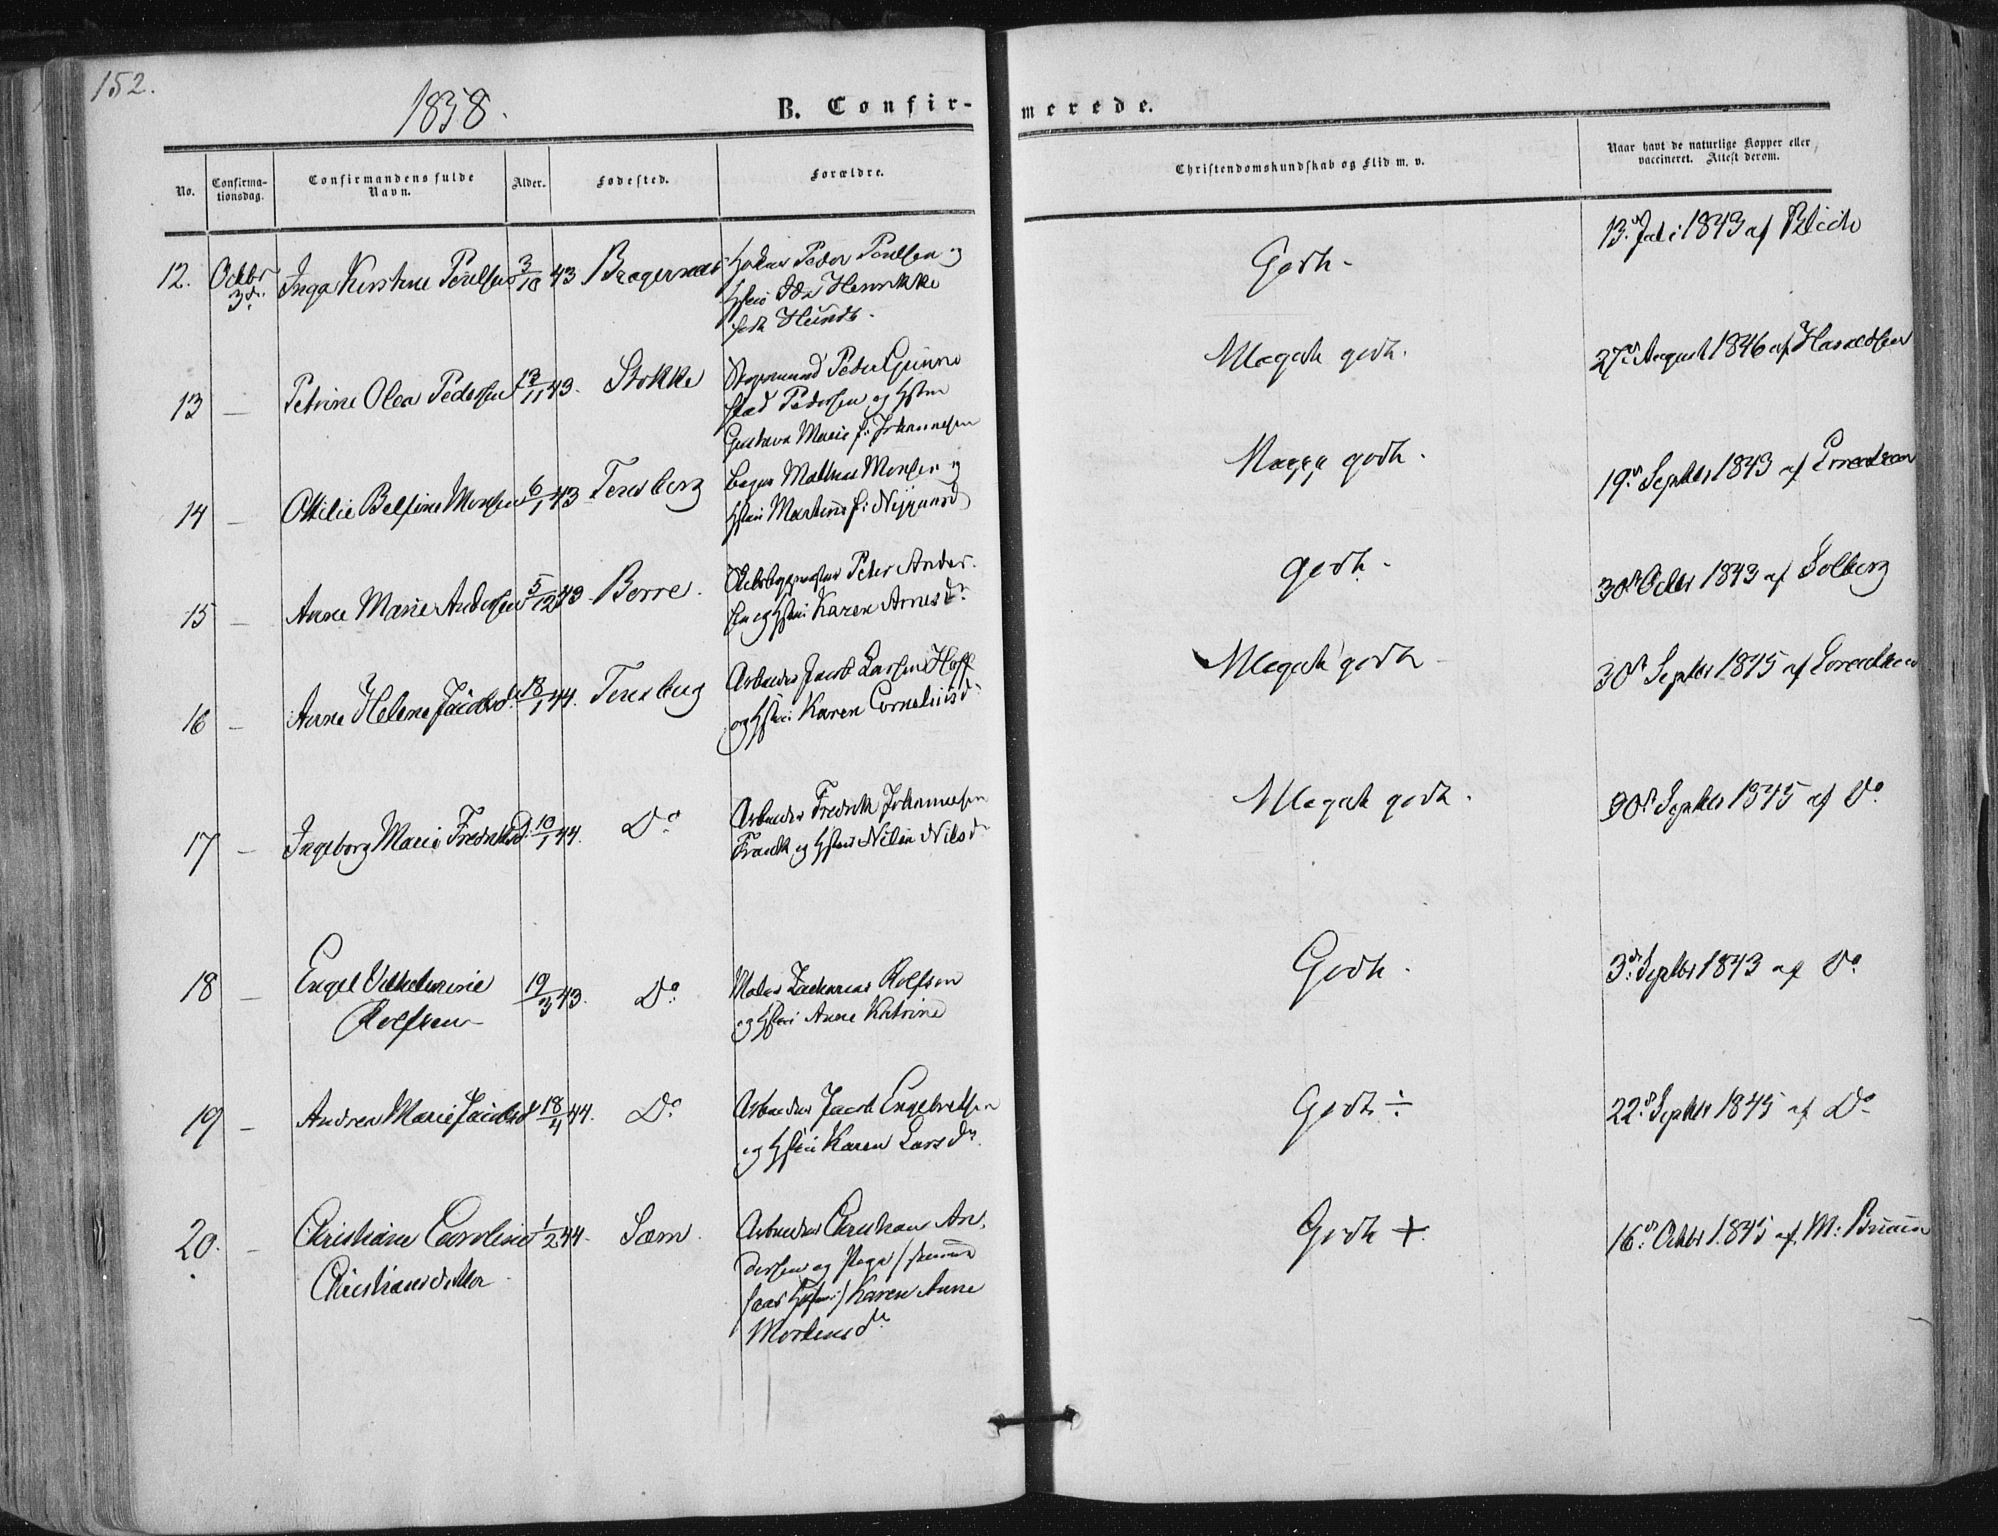 152.
1858.
B. Confir-
merede.
No.
Confirma-
tionsdag.
Confirmandens fulde
Navn.
Alder.
Fødested.
Forældre.
Christendomskundskab og Flid m. v.
Naar havt de naturlige Kopper eller
vaccineret. Attest derom.
12. Octbr 3d. Inga Kirstine Poulsen 3/10 43 Bragernæs Peder Poulsen og
Hstru Ida Henrikke
født Hundt.
Godt. 13d Juli 1843 af
13 — Petrine Olea Pedersen 43. Stokke Styrmand Peder Gunne
stad Pedersen og Hstru
Gustava Marie f: Johannesen
Meget godt. 27d August 1846 af Haraldsen
14 — Ottilie Monsen 6/1 43 Tønsberg Bager Mathias Monsen og
Hstru Martine f: Nygaard
Meget godt. 19d Septbr 1843 af Lorentzen
15 — Anne Marie Andersen 5/12 43 Borre. Skibsbygmester Peter Ander-
sen og Hstru Karen Arnesdr
godt. 30d Octbr 1843 af Solberg
16 — Anne Helene Jacobsd. 18/1 44. Tønsberg Arbeider Jacob Larsen Hoff
og Hstru Karen Corneliusd
Meget godt 30d Septbr 1845 af Lorentzen
17 — Ingeborg Marie Fredriksd: 10/1 44. Do Arbeider Fredrik Johannesen
og Hstru Nilsd
Meget godt. 30d Septbr 1845 af Do
18 — Engel Vilhelmine
Rolfsen 19/3 43. Do: Maler Zacharias Rolfsen
og Hstru Anne Katrine
Godt. 3d: Septbr 1843 af Do
19 — Andrea Marie Jacobsd 18/4 44. Do Arbeider Jacob Engebretsen
og Hstru Karen Larsdr.
Godt ÷ 22d Septbr 1845 af Do
20. — Christiane Caroline
Christiansdatter 1/2 44. Sæm. Arbeider Christian An-
dersen og Pige /
Karen Anne
Mortensdr
Godt + 16d: Octbr 1845 af M: Bruun